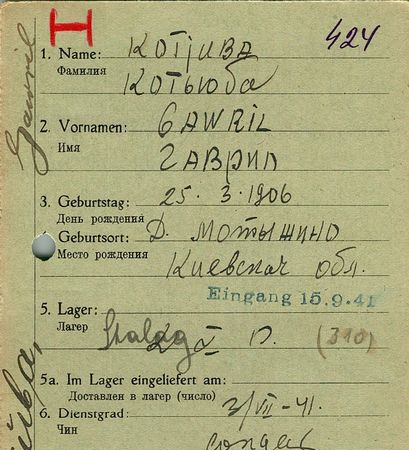 424
1. Name: КОТJИВА
Фамилия
Котьюба
2. Vornamen: GAWRIL
Имя
Гаврил
3. Geburtstag: 25. 3. 1906
День рождения
Geburtsort: Д. Мотыжино
Место рождения
Киевская обл.
Eingang 15.9.41
5. Lager: Stalag X D. (310)
Лагерь
5a. Im Lager eingeliefert am:
Доставлен в лагерь (число)
6. Dienstgrad: 3/VII-41.
Чин
солдат
Gawril